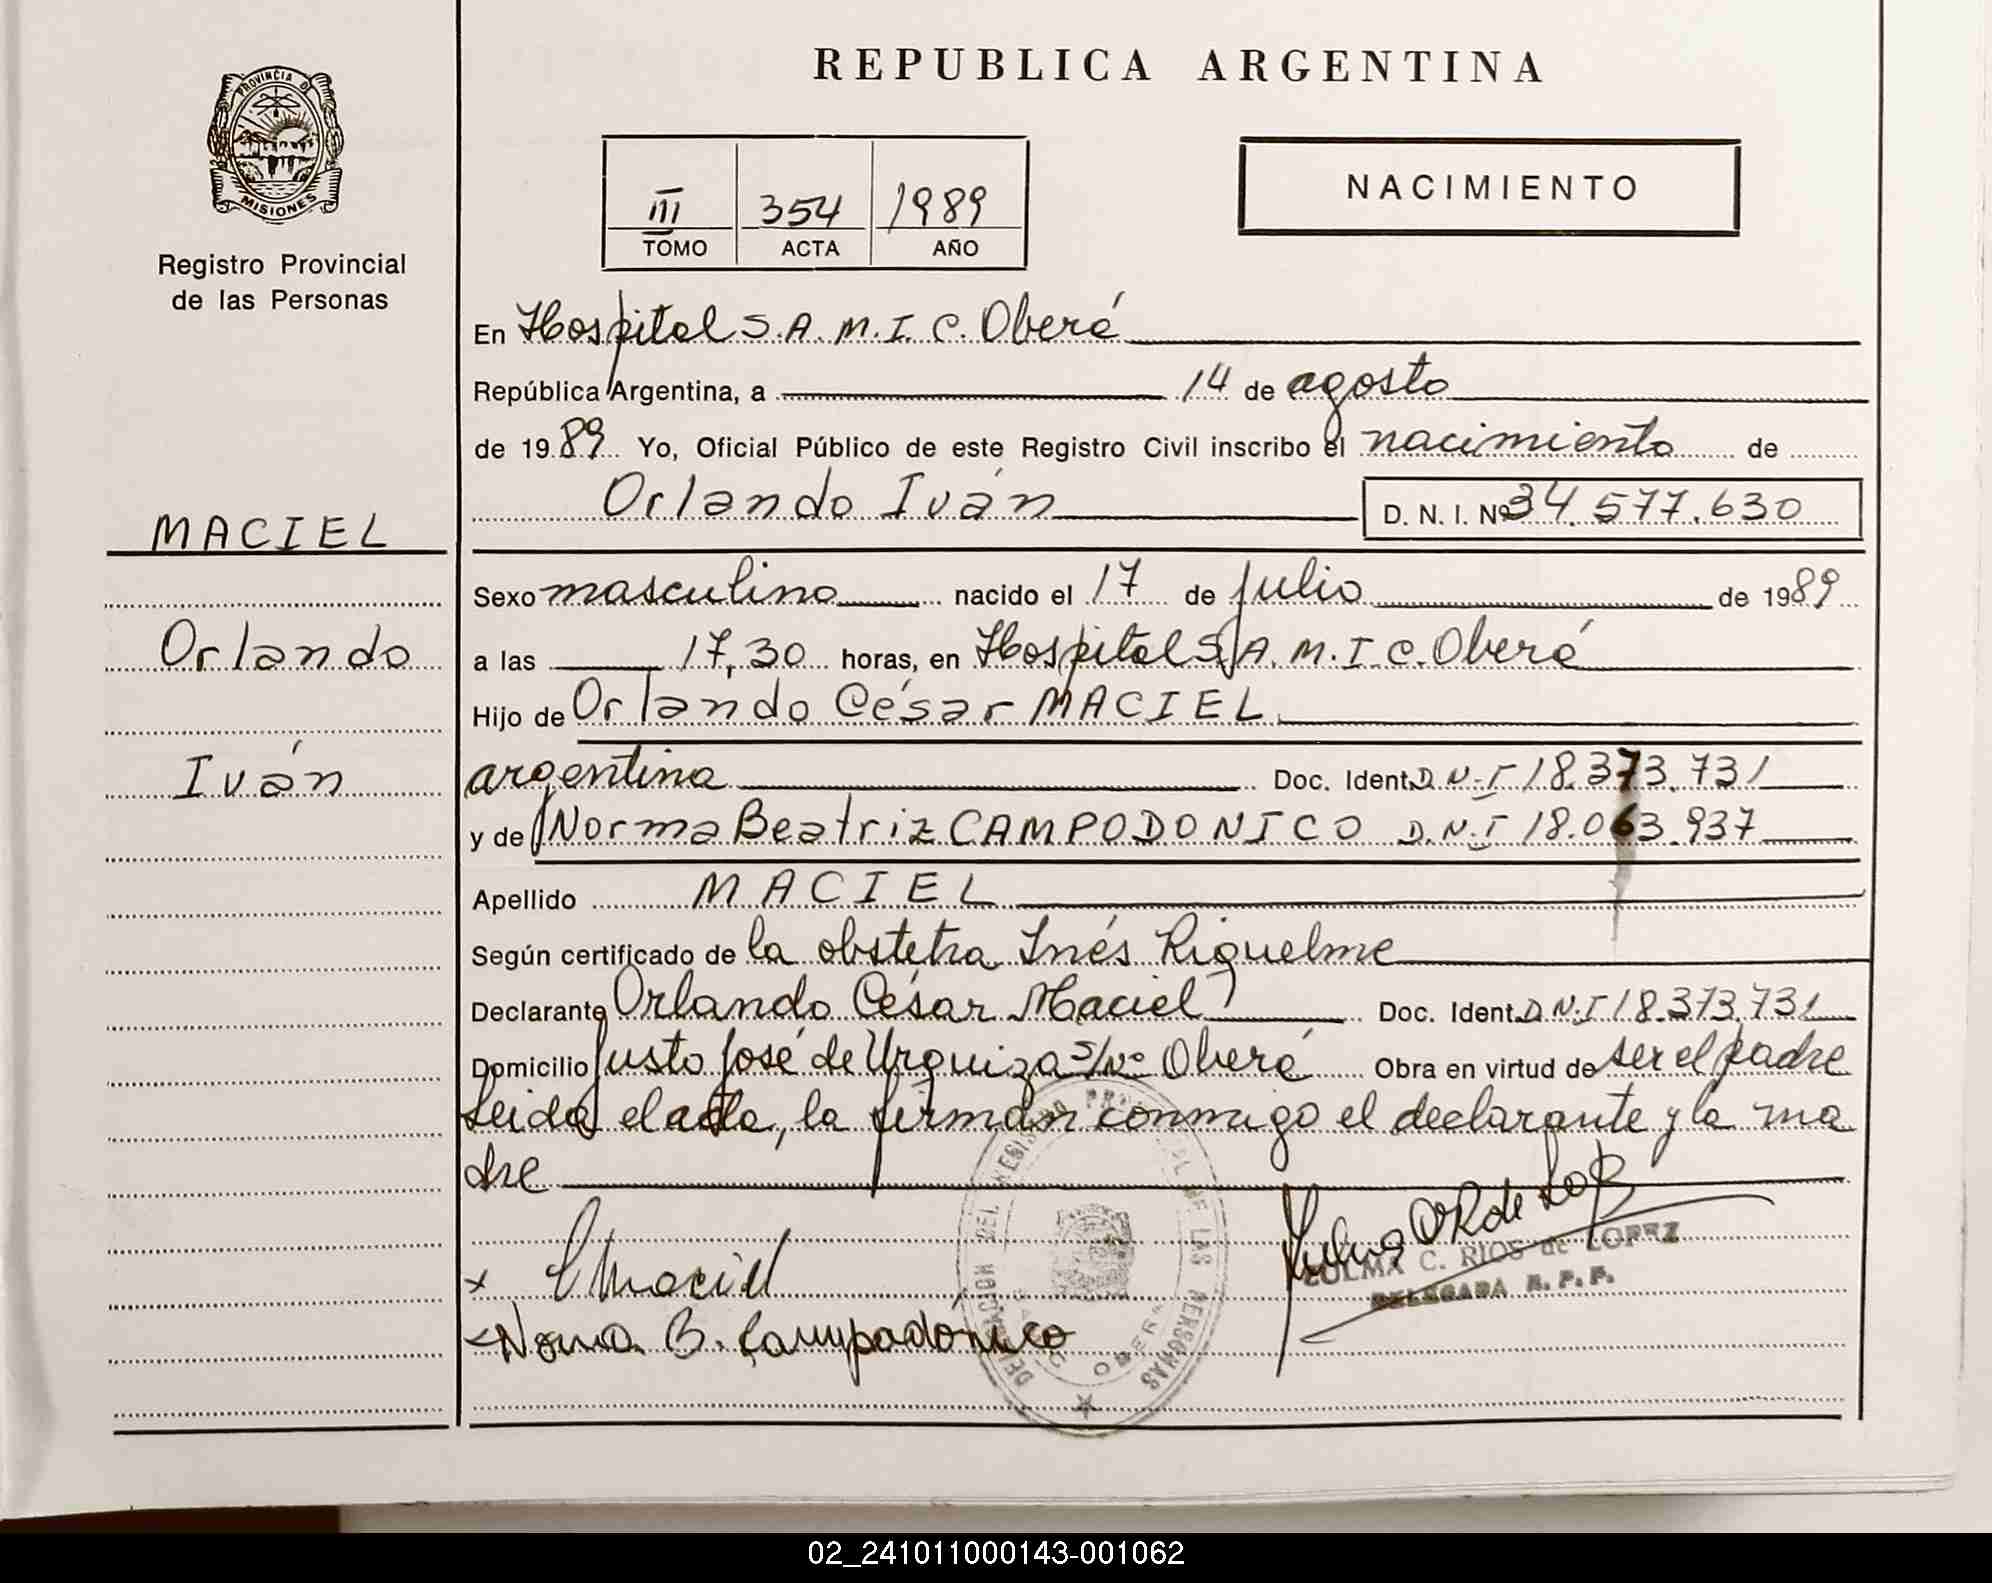 PROVINCIA DE
MISIONES
Registro Provincial
de las Personas
MACIEL
Orlando
Iván
REPUBLICA ARGENTINA
III 354 1989
TOMO ACTA AÑO
NACIMIENTO
En Hospital S.A.M.I.C. Oberá
República Argentina, a 14 de agosto
de 1989 Yo, Oficial Público de este Registro Civil inscribo el nacimiento de
Orlando Iván D. N. I. Nº 34.577.630
Sexo masculino nacido el 17 de julio de 1989
a las 17,30 horas, en Hospital S.A.M.I.C. Oberá
Hijo de Orlando César MACIEL
argentina Doc. Ident. D.N.I 18.373.731
y de Norma Beatriz CAMPODONICO D.N.I 18.063.937
Apellido MACIEL
Según certificado de la obstetra Inés Riquelme
Declarante Orlando César Maciel Doc. Ident. D.N.I 18.373.731
Domicilio Justo José de Urquiza s/Nº Oberá Obra en virtud de ser el padre
Leida el acta, la firman conmigo el declarante y la ma
dre
x Maciel
Norma B. Campodónico
ZULMA C. RIOS de LOPEZ
DELEGADA R. P. P.
DELEGACION DEL REGISTRO PROVINCIAL DE LAS PERSONAS
OBERA
02_241011000143-001062